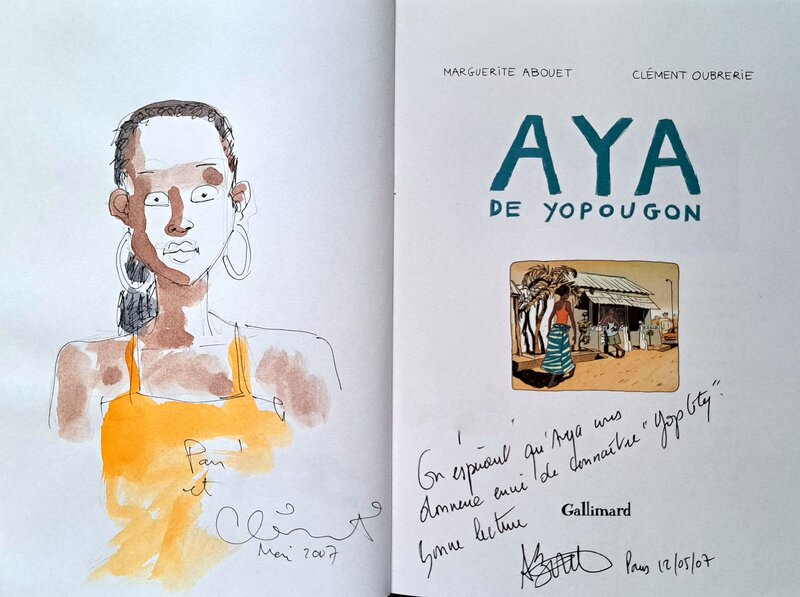 et
Clément
Mai 2007
MARGUERITE ABOUET
CLÉMENT OUBRERIE
AYA
DE YOPOUGON
En espérant qu'Aya vous
donnera envie de connaître "Yop City".
Bonne lecture
Gallimard
Paris 12/05/07